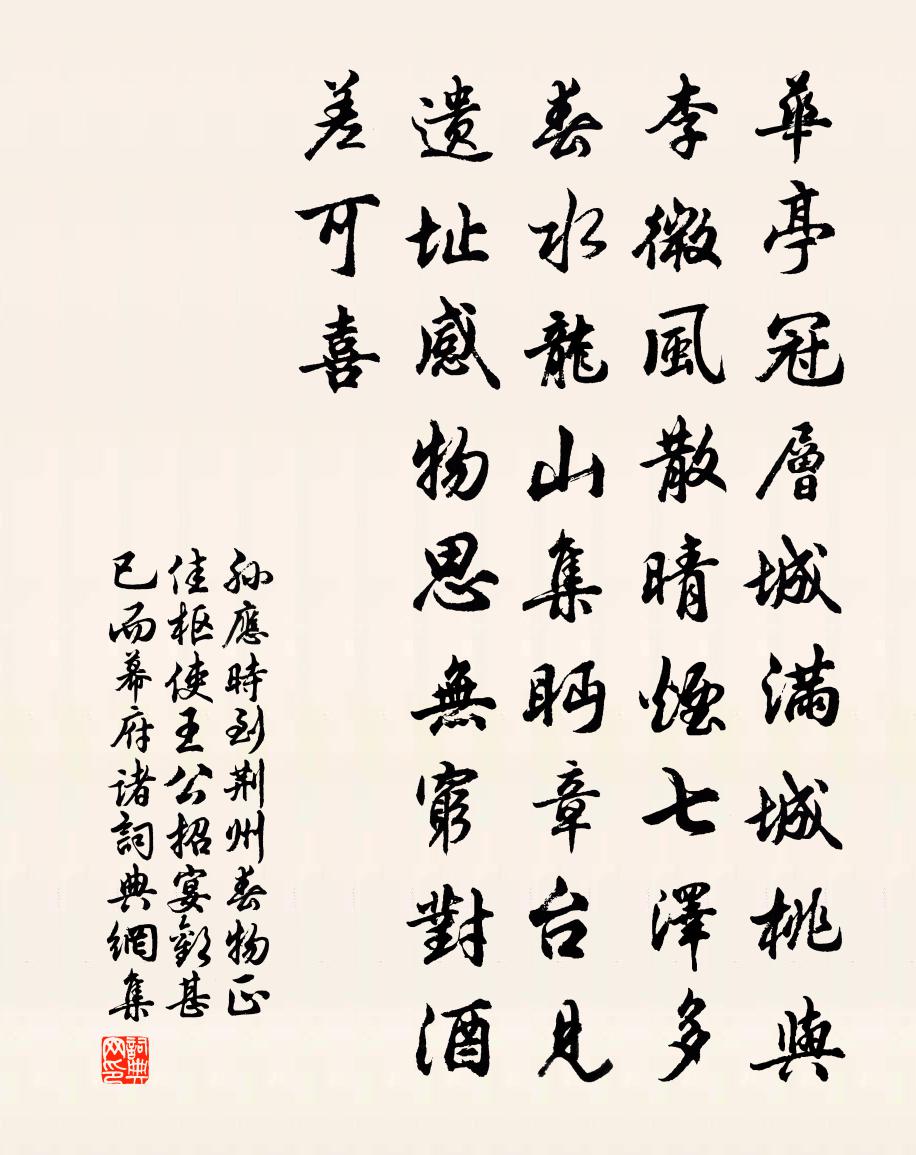 華亭冠層城滿城桃與
李微風散晴煙七澤多
春水龍山集眄章台見
遺址感物思無窮對酒
差可喜
孙應時到荆州春物正
佳枢使王公招宴歡甚
已而幕府诸詞典網集
詞典网印